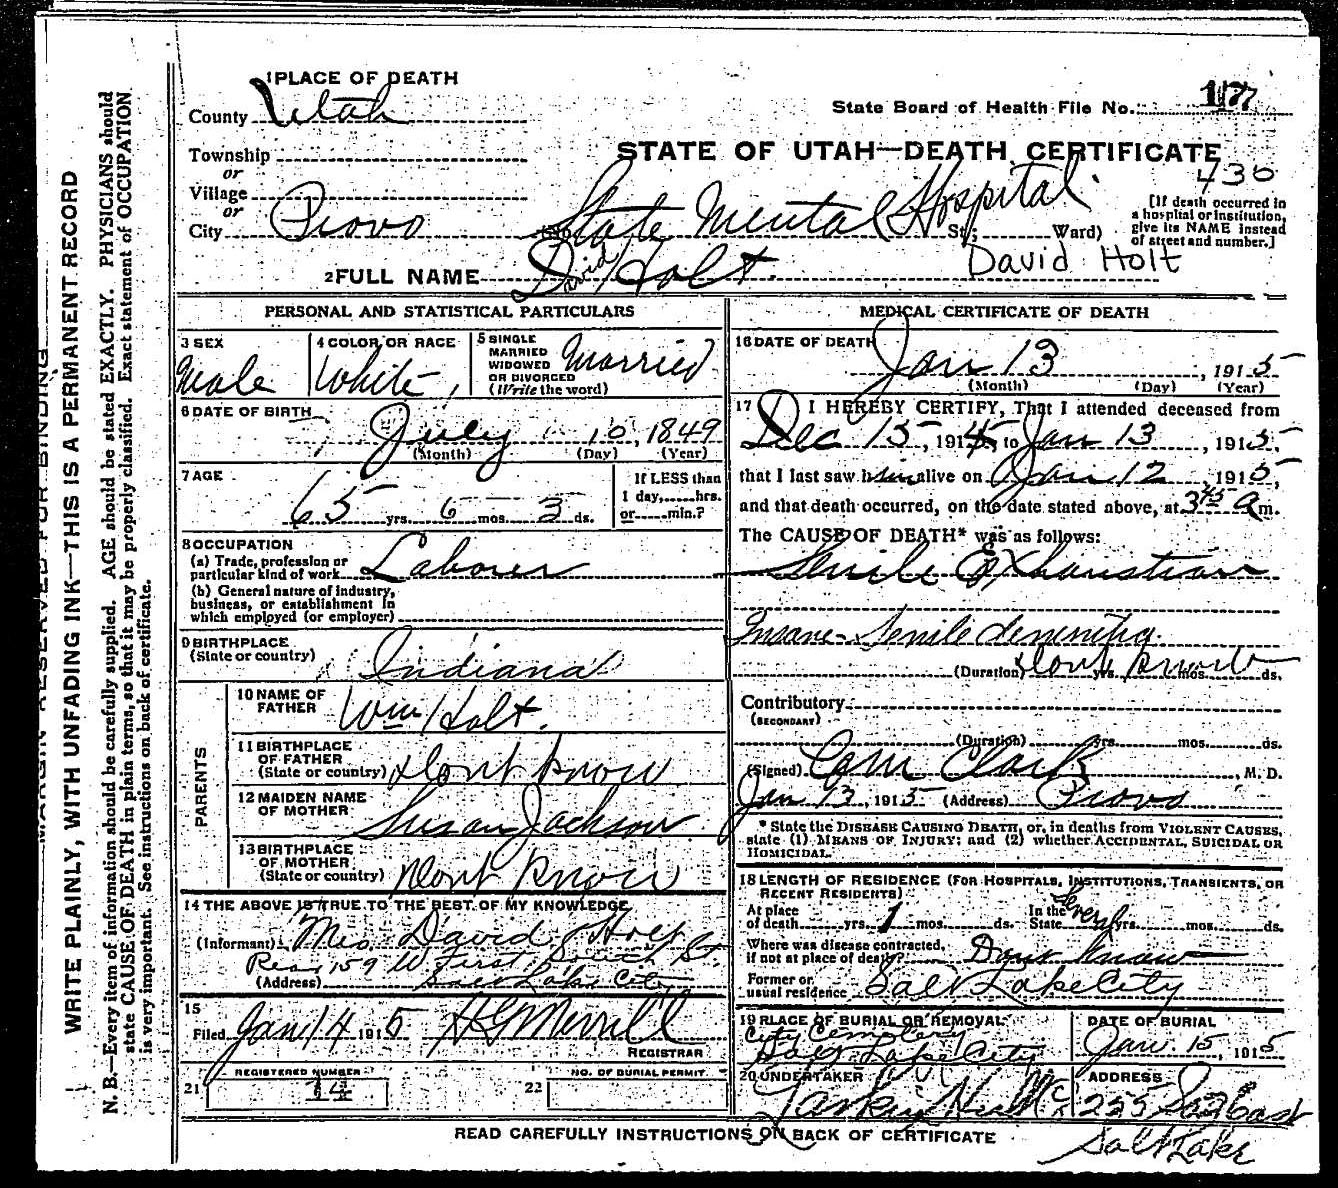 1 PLACE OF DEATH
County Utah
State Board of Health File No. 177
Township
or
STATE OF UTAH—DEATH CERTIFICATE
436
Village
or
City Provo (No. State Mental Hospital St.; Ward)
[If death occurred in
a hospital or institution,
give its NAME instead
of street and number.]
2 FULL NAME David Holt
David Holt
PERSONAL AND STATISTICAL PARTICULARS
3 SEX
Male
4 COLOR OR RACE
White
5 SINGLE
MARRIED
WIDOWED
OR DIVORCED
(Write the word)
Married
6 DATE OF BIRTH
July 10, 1849
(Month) (Day) (Year)
7 AGE
65 yrs. 6 mos. 3 ds.
If LESS than
1 day,......hrs.
or......min.?
8 OCCUPATION
(a) Trade, profession or
particular kind of work Laborer
(b) General nature of industry,
business, or establishment in
which employed (or employer)
9 BIRTHPLACE
(State or country) Indiana
PARENTS
10 NAME OF
FATHER Wm Holt.
11 BIRTHPLACE
OF FATHER
(State or country) Dont know
12 MAIDEN NAME
OF MOTHER Susan Jackson
13 BIRTHPLACE
OF MOTHER
(State or country) Dont know
14 THE ABOVE IS TRUE TO THE BEST OF MY KNOWLEDGE
(Informant) Mrs David Holt
Rear 159 W First South St.
(Address) Salt Lake City
15
Filed Jan 14 1915 H G Merrill
REGISTRAR
21 REGISTERED NUMBER
14
22 NO. OF BURIAL PERMIT
MEDICAL CERTIFICATE OF DEATH
16 DATE OF DEATH
Jan 13, 1915
(Month) (Day) (Year)
17 I HEREBY CERTIFY, That I attended deceased from
Dec 15, 1914, to Jan 13, 1915
that I last saw him alive on Jan 12, 1915,
and that death occurred, on the date stated above, at 3 45 a m.
The CAUSE OF DEATH* was as follows:
Senile Exhaustion
Insane - Senile dementia.
(Duration) Dont know yrs. mos. ds.
Contributory
(SECONDARY)
(Duration) yrs. mos. ds.
(Signed) Clark, M. D.
Jan 13, 1915 (Address) Provo
* State the DISEASE CAUSING DEATH, or, in deaths from VIOLENT CAUSES,
state (1) MEANS OF INJURY; and (2) whether ACCIDENTAL, SUICIDAL OR
HOMICIDAL.
18 LENGTH OF RESIDENCE (FOR HOSPITALS, INSTITUTIONS, TRANSIENTS, OR
RECENT RESIDENTS)
At place
of death yrs. 1 mos. ds.
In the
State Several yrs. mos. ds.
Where was disease contracted,
if not at place of death? Dont know
Former or
usual residence Salt Lake City
19 PLACE OF BURIAL OR REMOVAL
City Cemetery
Salt Lake City
DATE OF BURIAL
Jan. 15, 1915
20 UNDERTAKER
Larkin
ADDRESS
255 So East
Salt Lake
READ CAREFULLY INSTRUCTIONS ON BACK OF CERTIFICATE
MARGIN RESERVED FOR BINDING
WRITE PLAINLY, WITH UNFADING INK—THIS IS A PERMANENT RECORD
N. B.—Every item of information should be carefully supplied. AGE should be stated EXACTLY. PHYSICIANS should
state CAUSE OF DEATH in plain terms, so that it may be properly classified. Exact statement of OCCUPATION
is very important. See instructions on back of certificate.